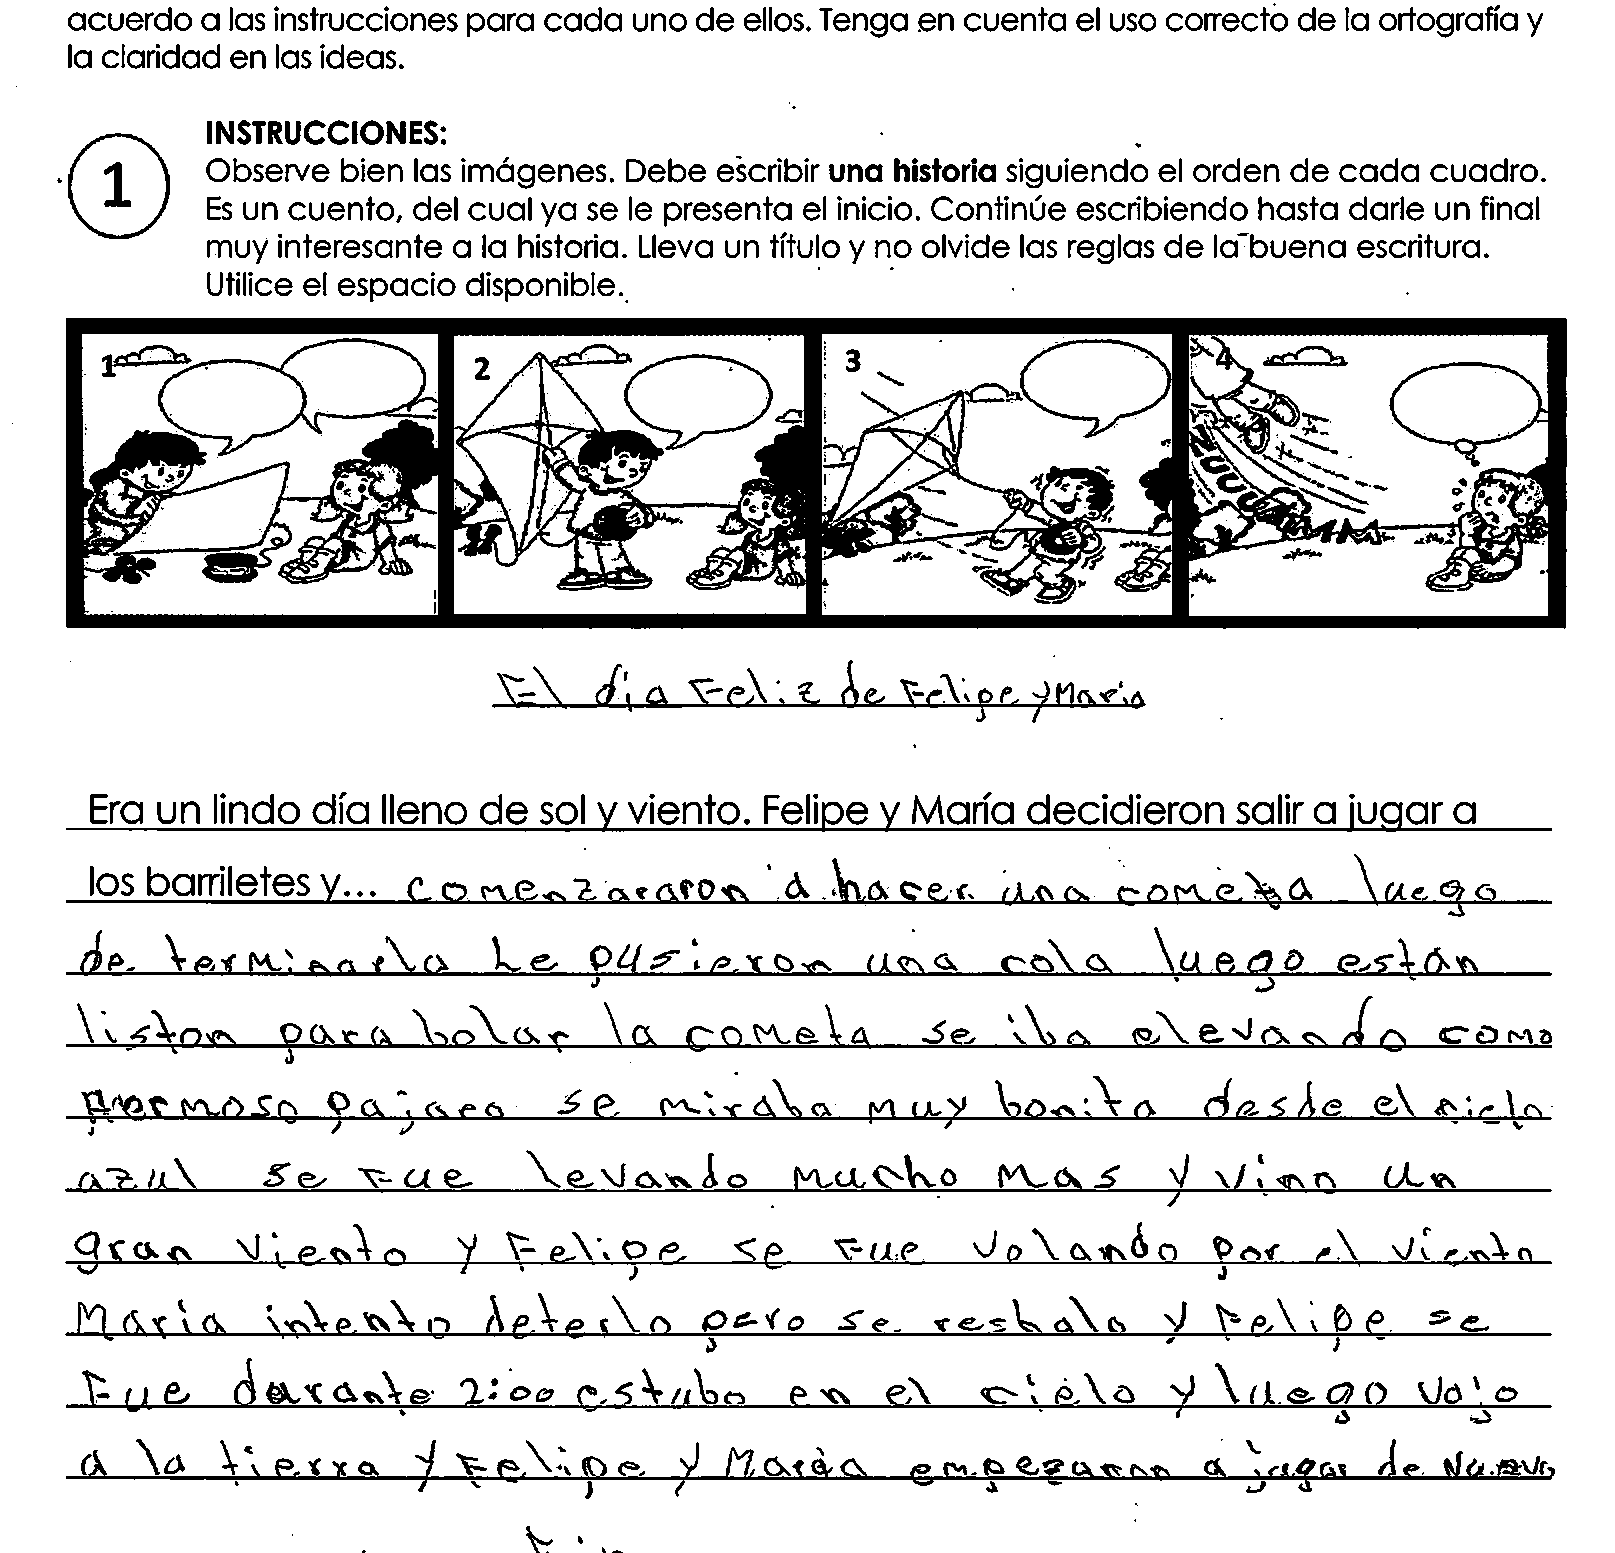 acuerdo a las instrucciones para cada uno de ellos. Tenga en cuenta el uso correcto de la ortografía y
la claridad en las ideas.
1
INSTRUCCIONES:
Observe bien las imágenes. Debe escribir una historia siguiendo el orden de cada cuadro.
Es un cuento, del cual ya se le presenta el inicio. Continúe escribiendo hasta darle un final
muy interesante a la historia. Lleva un título y no olvide las reglas de la buena escritura.
Utilice el espacio disponible.
1 2 3 4
El día Feliz de Felipe y Maria
Era un lindo día lleno de sol y viento. Felipe y María decidieron salir a jugar a
los barriletes y... comenzararon a hacer una cometa luego
de terminarla Le pusieron una cola luego están
liston para bolar la cometa se iba elevando como
hermoso pajaro se miraba muy bonita desde el cielo
azul se fue levando mucho mas y vino un
gran viento y Felipe se fue volando por el viento
Maria intento deterlo pero se resbalo y Felipe se
Fue durante 2:00 estubo en el cielo y luego vajo
a la tierra y Felipe y María empezaron a jugar de Nuevo
Fin